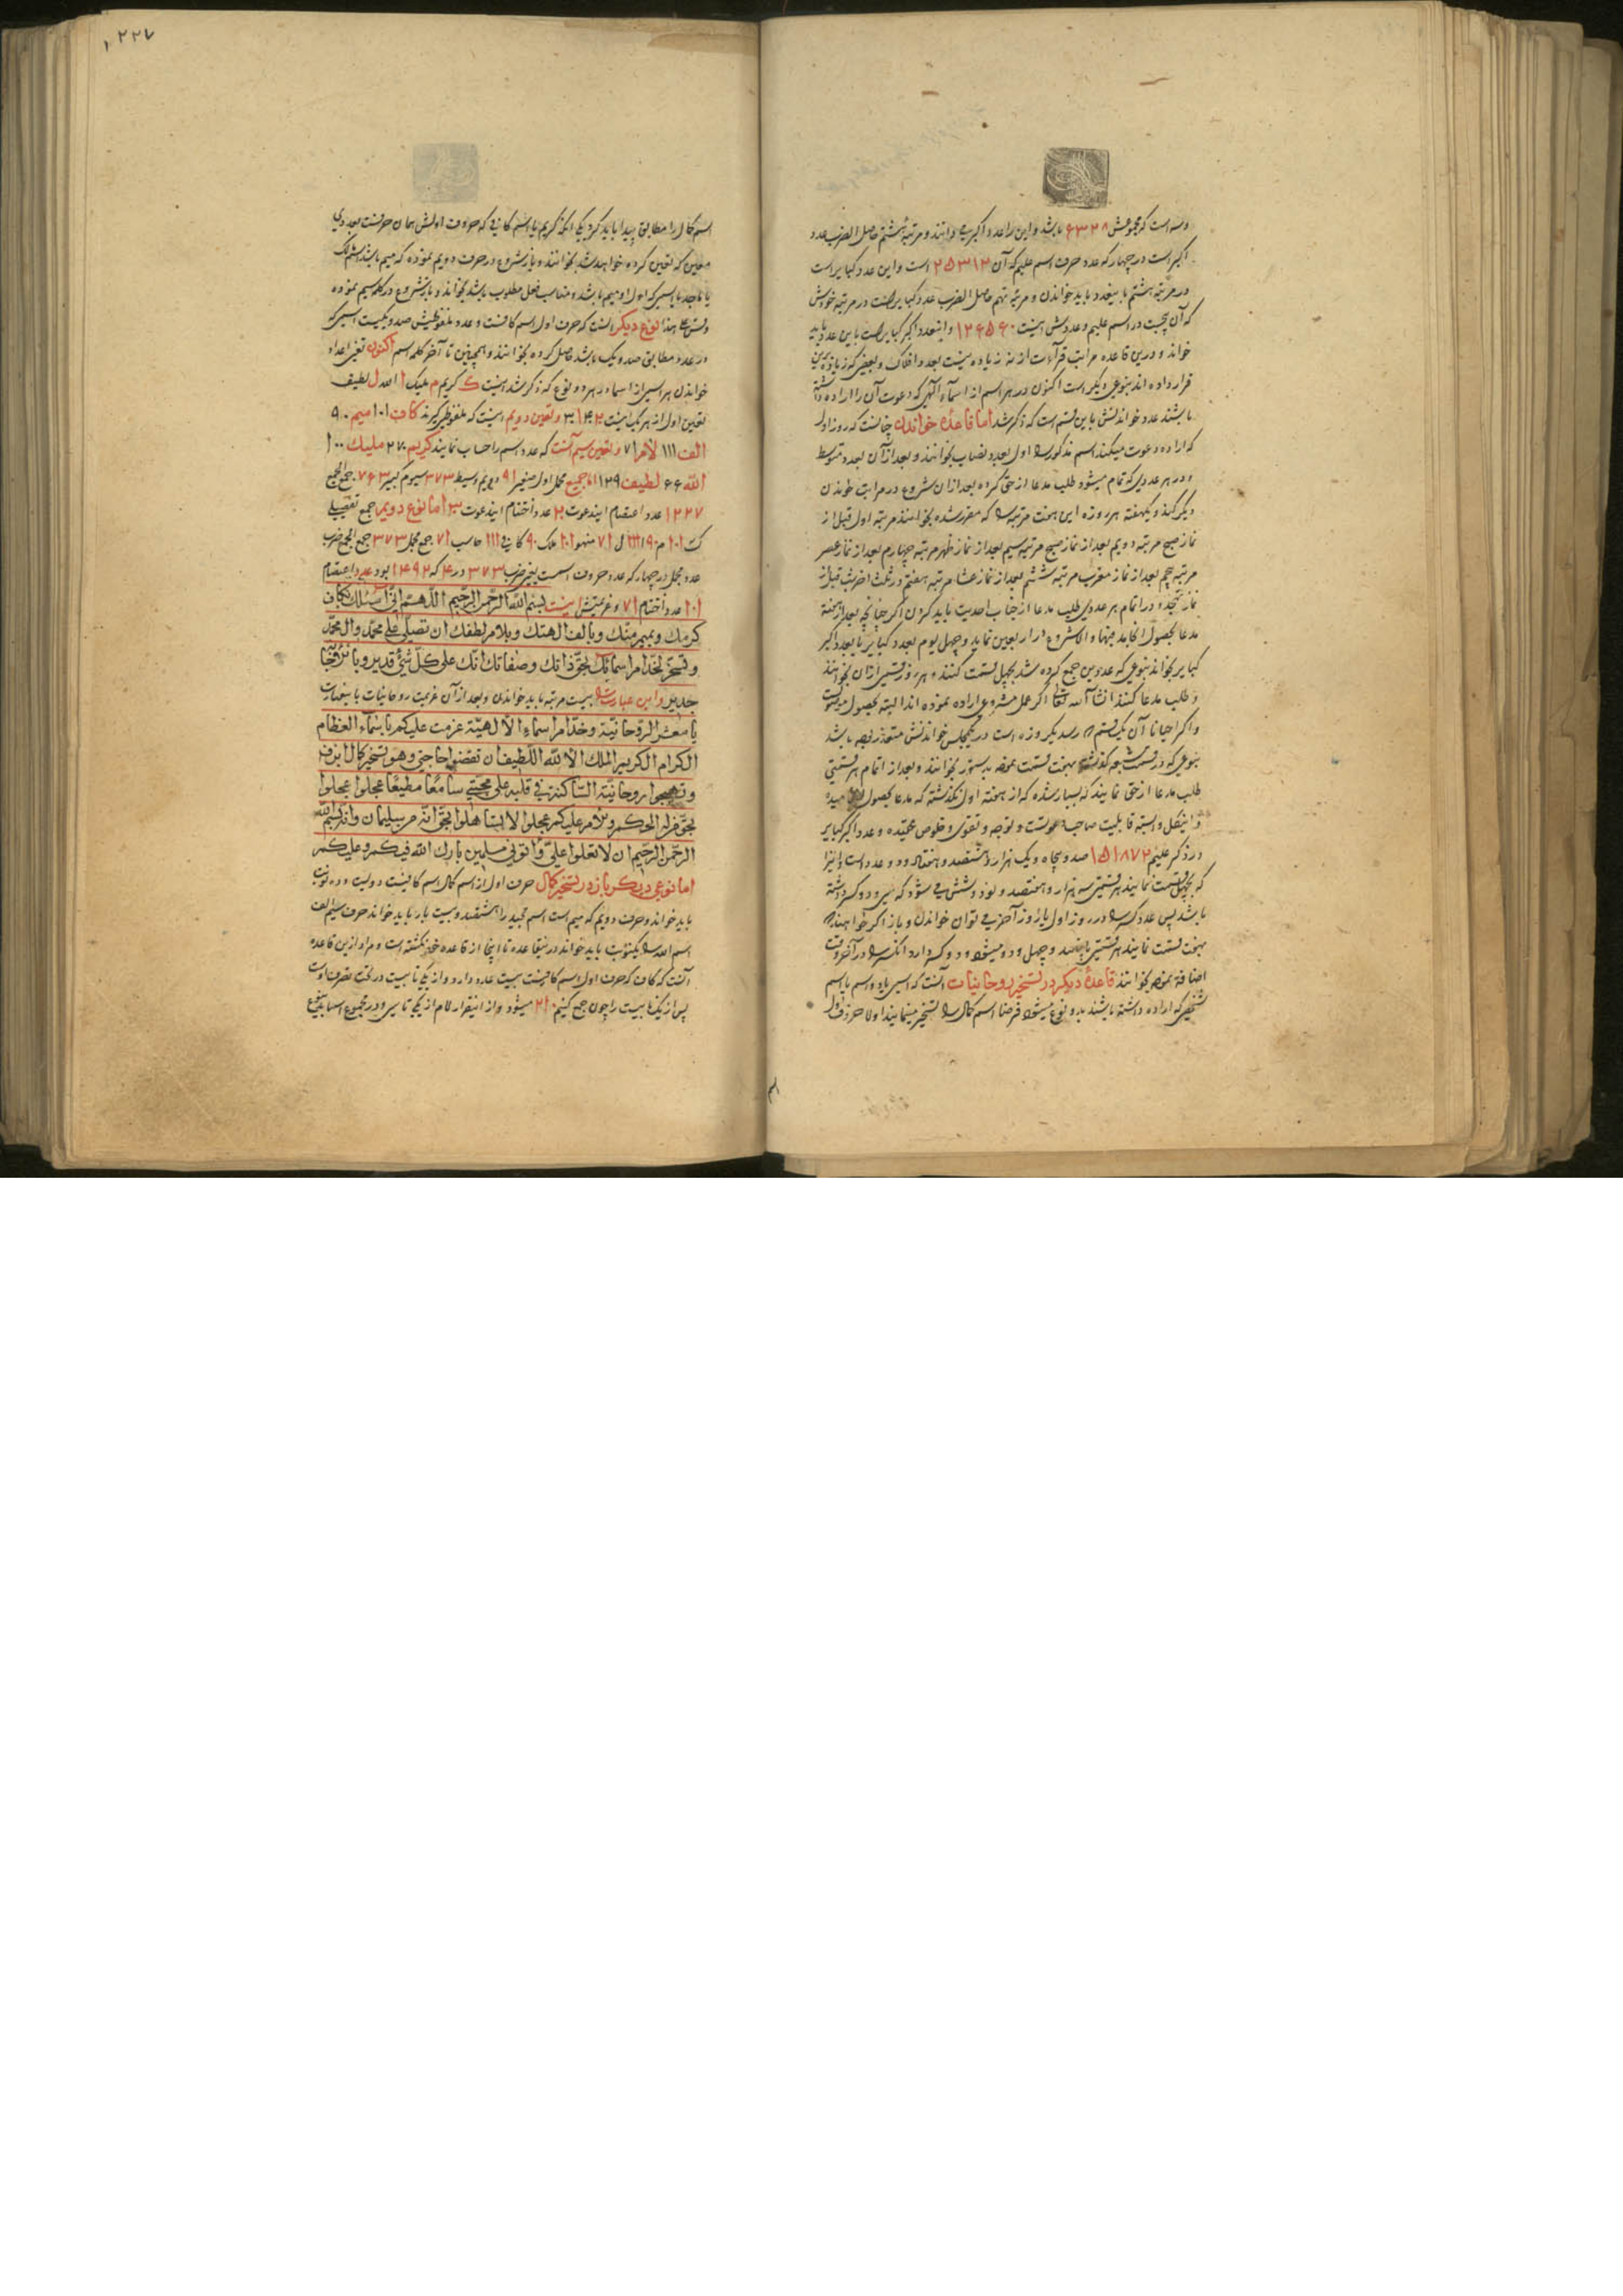 وسه است که مجموعش ۶۳۲۸ باشد و این را عدد اکبر می دانند و مرتبهٔ هشتم حاصل الضرب عدد
اکبر است در چهار که عدد حرف اسم علیم که آن ۲۵۳۱۲ است و این عدد کبایر است
در مرتبه هشتم باینعدد باید خواندن و مرتبه نهم حاصل الضرب عدد کبایر است در مرتبه خودش
که آن پنجست در اسم علیم و عددش اینست ۱۲۶۵۶۰ و اینعدد اکبر کبایر است باین عدد باید
خواند و درین قاعده مراتب قرآءت از نه زیاده نیست بعدد افلاک و بعضی که زیاده ازین
قرار داده اند بنوعی دیگر است اکنون در هر اسم از اسمآء الهی که دعوت آن را اراده داشته
باشند عدد خواندنش باین قسم است که ذکر شد اما قاعدهٔ خواندن چنانست که روز اول
که اراده دعوت میکند اسم مذکور را اول بعدد نصاب بخوانند و بعد از آن بعدد متوسط
و در هر عددی که تمام میشود طلب مدعا از حق کرده بعد از ان شروع در مراتب خواندن
دیگر کند و یکهفته هر روزه این هفت مرتبه را که مقرر شده بخوانند مرتبه اول قبل از
نماز صبح مرتبه دویم بعد از نماز صبح مرتبه سیم بعد از نماز ظهر مرتبه چهارم بعد از نماز عصر
مرتبه پنجم بعد از نماز مغرب مرتبه ششم بعد از نماز عشا مرتبه هفتم در ثلث اخر شب قبل از
نماز تهجد و در اتمام هر عددی طلب مدعا از جناب احدیت باید کردن اگر چنانچه بعد از هفته
مدعا بحصول انجامد فبها والا شروع در اربعین نماید و چهل یوم بعدد کبایر یا بعدد اکبر
کبایر بخواند بنوعی که عددین جمع کرده شد بچهل قسمت کنند و هر روز قسمی از ان بخوانند
و طلب مدعا کنند انشآء الله تعالی اگر عمل مشروع اراده نموده اند البته بحصول موصول است
و اگر احیانا آن یک قسم را رسد یکروزه است در یکمجلس خواندنش متعذر بوجه باشد
بنوعی که در قسمت نوشته بهفت قسمت نموده بدستور بخوانند و بعد از اتمام هر قسمتی
طلب مدعا از حق نمایند که بسیار شده که از هفته اول نگذشته که مدعا بحصول میده
و اینکل وابسته قابلیت صاحب دعوتست و توجه و تقوی و خلوص عقیده و عدد اکبر کبایر
در ذکر علیم ۱۵۱۸۷۲ صد و پنجاه و یک هزار و هشتصد و هفتاد و دو عدد است و اینرا
که بچهل قسمت نمایند هر قسمتی سه هزار و هفتصد و نود و شش می شود که سی و دو کسر داشته
باشد پس عدد کسر را در روز اول یا روز آخر می توان خواندن و باز اگر خواهند
بهفت قسمت نمایند هر قسمتی پانصد و چهل و دو میشود و دو کسر دارد انکسر را در آخر وقت
اضافه نموده بخوانند قاعدهٔ دیگر در تسخیر روحانیات آنست که اسمی یا دو اسم با اسم
شخصی که اراده داشته باشند بدو نوع میشود فرضا اسم کمال را تسخیر مینمایند اولا حرف اول
۱۲۲۷
اسم کمال را مطابق پیدا باید کرد یکی آنکه کریم یا اسم کافی که حروف اولش همان حرفست بعددی
معین که تعین کرده خواهد شد بخوانند و باز شروع در حرف دویم نموده که میم باشد اسم ملک
یا ماجد یا اسمی که اول او میم باشد و مناسب فعل مطلوب باشد بخواند و باز شروع در کلمه سیم نموده
وقس علی هذا نوع دیگر آنست که حرف اول اسم کافست و عدد ملفوظیش صد و یکیست اسمی که
در عدد مطابق صد و یک باشد حاصل کرده بخوانند و همچنین تا آخر کلمه اسم اکنون تعین اعداد
خواندن هر اسمی از اسما در هر دو نوع که ذکر شد اینست ک کریم م ملیک ا الله ل لطیف
تعین اول از هر یک اینست ۲ ۴ ۱ ۳ و تعین دویم اینست که ملفوظی گیرند کاف ۱۰۱ میم ۹۰
الف ۱۱۱ لام ۷۱ و تعین سیم آنست که عدد اسم را حساب نمایند کریم ۲۷۰ ملیک ۱۰۰
الله ۶۶ لطیف ۱۲۹ جمیع مجمل اول صغیر ۹۱ دویم وسیط ۳۷۳ سیوم کبیر ۷۶۳ جمع الجمع
۱۲۲۷ عدد اعتصام ایندعوت ۲۰ عدد اختتام ایندعوت ۳ اما نوع دویم جمع تفصیل
ک ۱۰۱ م ۹۰ ا ۱۱۱ ل ۷۱ منهوا ۱۰۱ ملک ۹۰ کافی ۱۱۱ حاسب ۷۱ جمع مجمل ۳۷۳ جمع الجمع ضرب
عدد مجمل در چهار که عدد حروف اسمست یعنی ضرب ۳۷۳ در ۴ که ۱۴۹۲ بود عدد اعتصام
۱۰۱ عدد اختتام ۷۱ و عزیمتش اینست بسم الله الرحمن الرحیم اللهم انی اسئلک بکاف
کرمک وبمیم منّک وبالف الهتک وبلام لطفک ان تصلی علی محمد وال محمد
وتسخر لخدام اسمائک بحق ذاتک وصفاتک انک علی کل شیء قدیر وبالاجابة
جدیر و این عبارت را بیست مرتبه باید خواندن و بعد از آن عزیمت روحانیات باینعبارت
یا معشر الروحانیة وخدام اسماء الالهیة عزمت علیکم باسماء العظام
الکرام الکریم الملک الا لله اللطیف ان تقضوا حاجتی وهو تسخیر کمال ابن ف
وتهیجوا روحانیة الساکنة فی قلبه علی محبتی سامعا مطیعا عجلوا عجلوا
بحق منزله الحکم ولامر علیکم عجلوا لا تساهلوا بحق انه من سلیمان وانه بسم الله
الرحمن الرحیم ان لا تعلوا علی واتونی مسلمین بارک الله فیکم وعلیکم
اما نوعی دیگر باز در تسخیر کمال حرف اول از اسم کمال اسم کافیست دویست و ده نوبت
باید خواند و حرف دویم که میم است اسم مجید را هشتصد و بیست بار باید خواند حرف سیم الف
اسم الله را یکنوبت باید خواند در نیقاعده تا اینجا از قاعده خود نگذشته است و مراد ازین قاعده
آنست که کاف که حرف اول اسم کافیست بیست عدد دارد و از یکی تا بیست در تحت تصرف اوست
پس از یک تا بیست را چون جمع کنیم ۲۱۰ میشود و از اینقرار لام از یکی تا سی و در مجموع اسما بدینوع